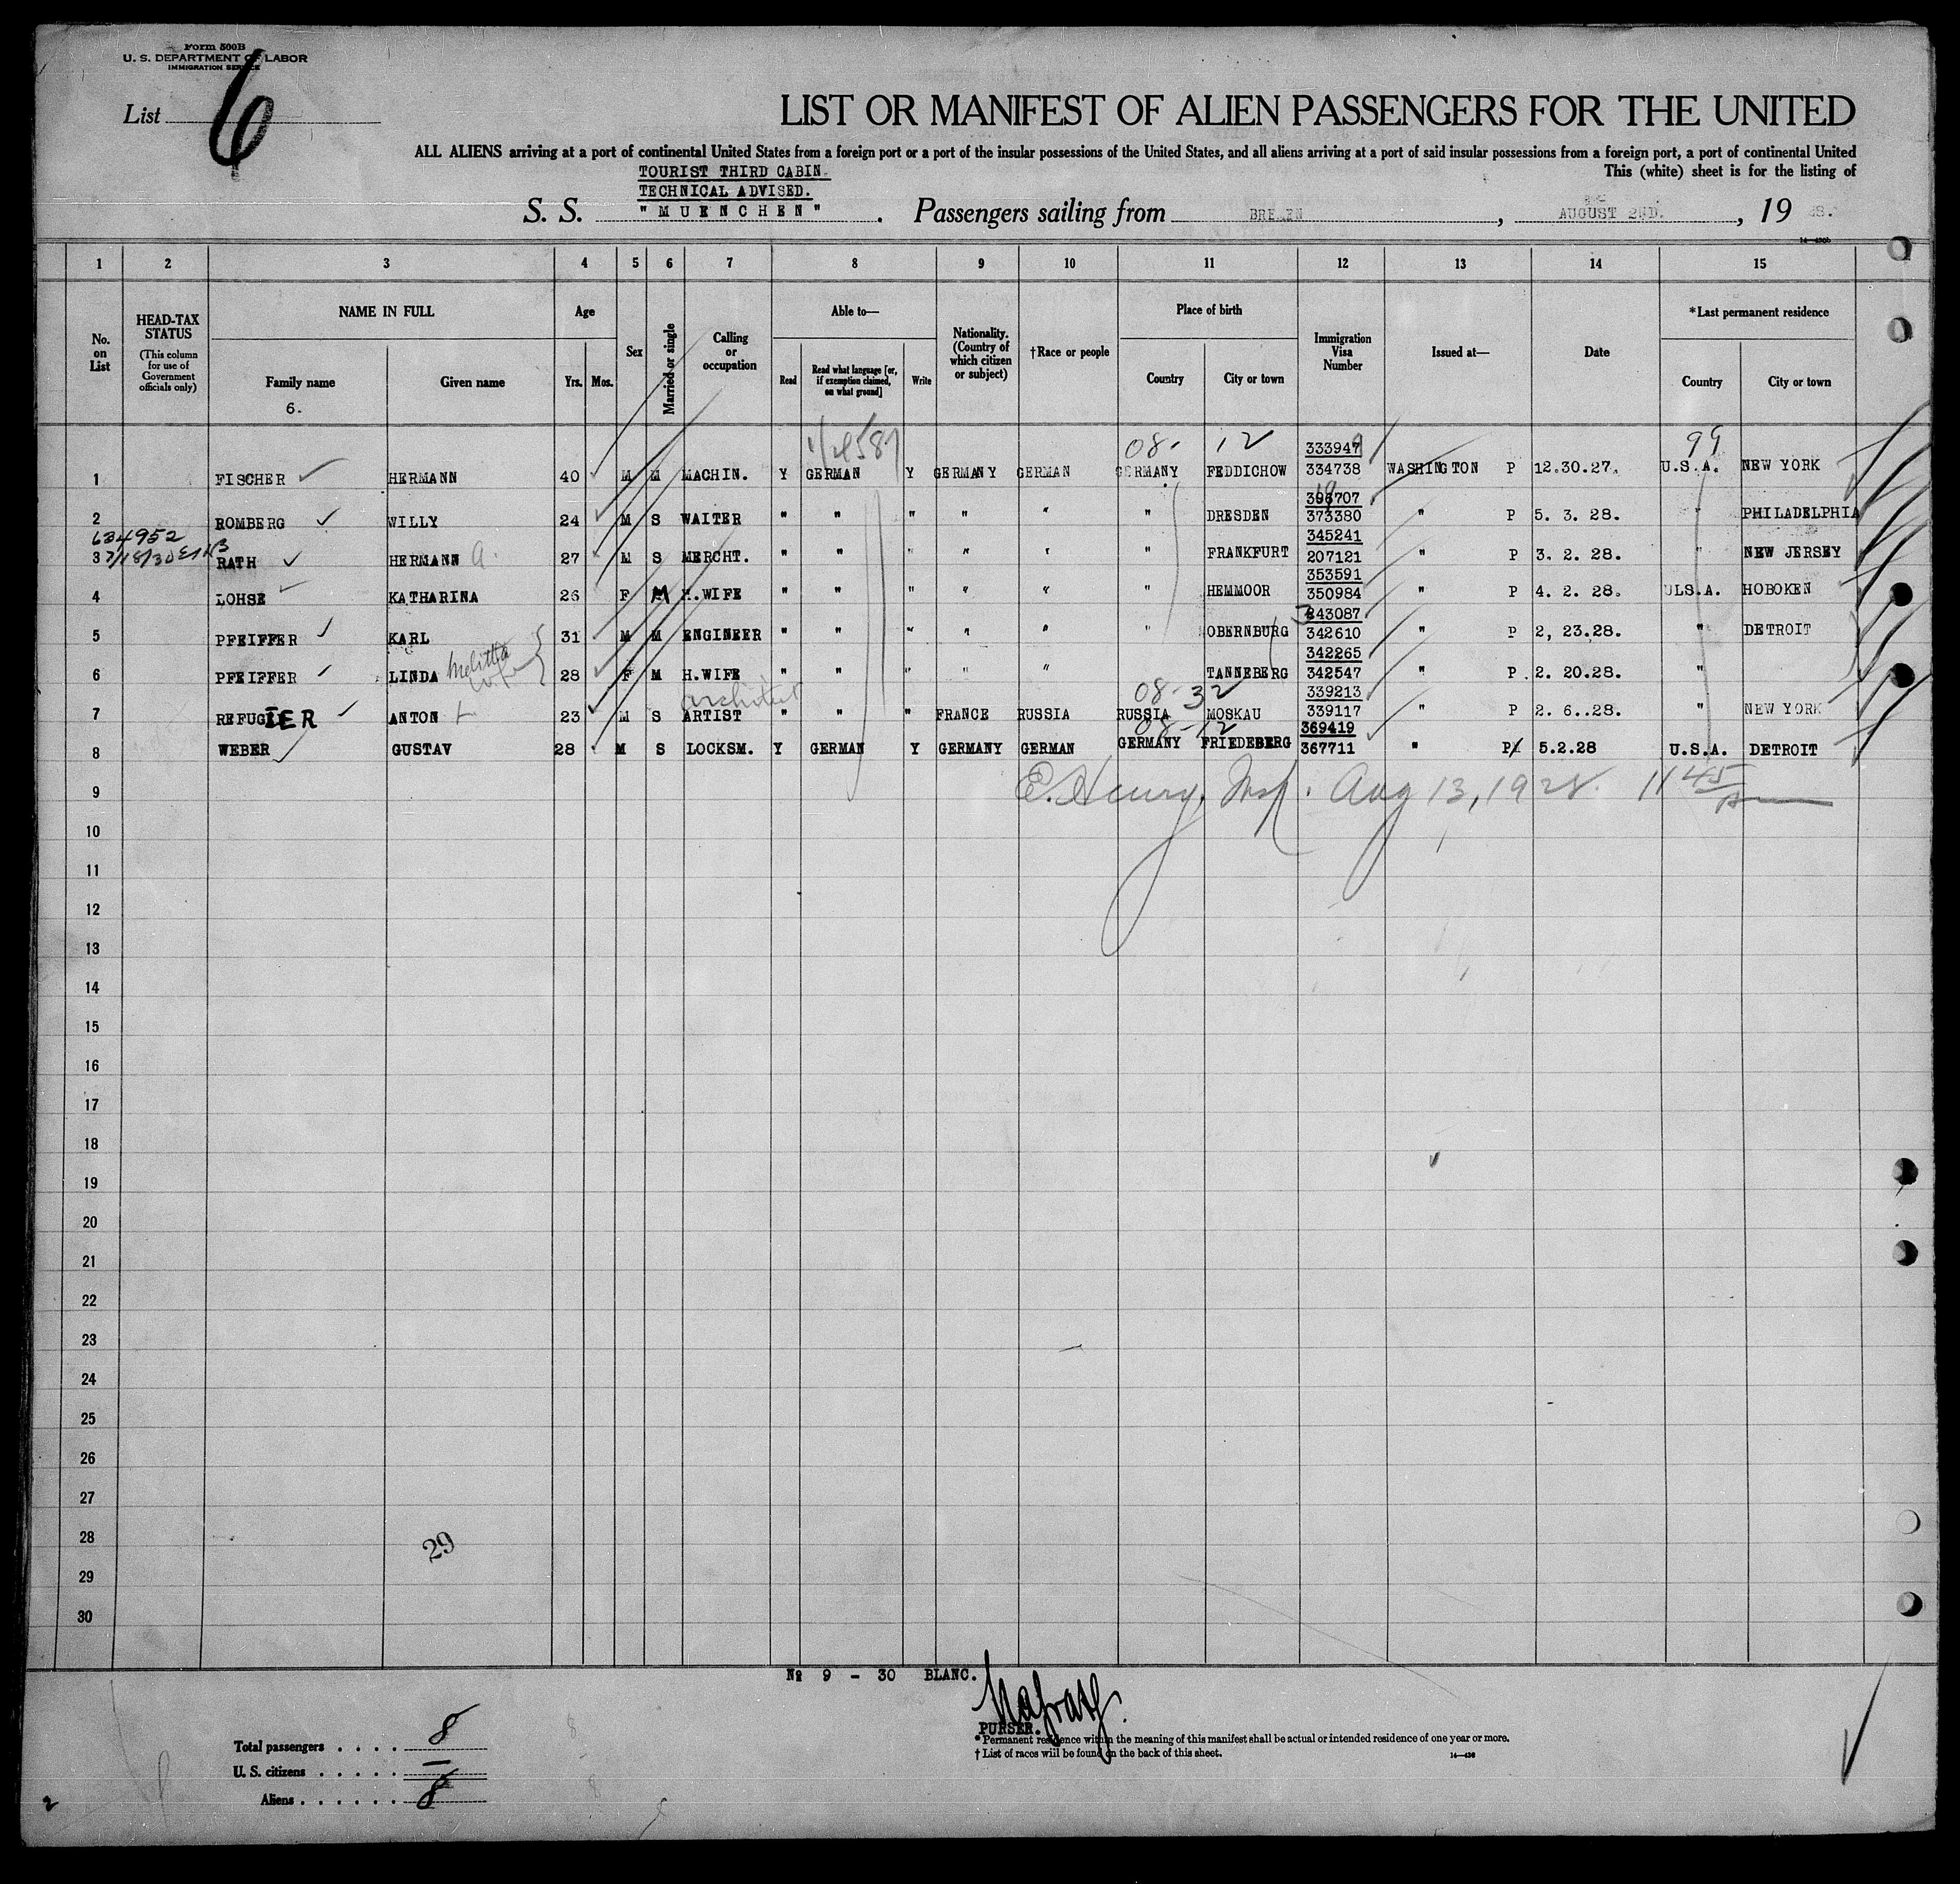 Form 500B
U. S. DEPARTMENT OF LABOR
IMMIGRATION SERVICE
List 6
LIST OR MANIFEST OF ALIEN PASSENGERS FOR THE UNITED
ALL ALIENS arriving at a port of continental United States from a foreign port or a port of the insular possessions of the United States, and all aliens arriving at a port of said insular possessions from a foreign port, a port of continental United
This (white) sheet is for the listing of
TOURIST THIRD CABIN.
TECHNICAL ADVISED.
S. S. "MUENCHEN". Passengers sailing from BREMEN, AUGUST 2ND., 19 28.
1 2 3 4 5 6 7 8 9 10 11 12 13 14 15
No. on List
HEAD-TAX STATUS (This column for use of Government officials only)
NAME IN FULL Family name Given name
6.
Age Yrs. Mos.
Sex
Married or single
Calling or occupation
Able to— Read Read what language [or, if exemption claimed, on what ground] Write
Nationality. (Country of which citizen or subject)
†Race or people
Place of birth Country City or town
Immigration Visa Number
Issued at—
Date
*Last permanent residence Country City or town
08- 12 99
333947
1 FISCHER HERMANN 40 M M MACHIN. Y GERMAN Y GERMANY GERMAN GERMANY FEDDICHOW 334738 WASHINGTON P 12.30.27. U.S.A. NEW YORK
2 ROMBERG WILLY 24 M S WAITER " " " " " " DRESDEN 373380 " P 5. 3. 28. " PHILADELPHIA
634952
345241
3 7/18/30 RATH HERMANN A. 27 M S MERCHT. " " " " " " FRANKFURT 207121 " P 3. 2. 28. " NEW JERSEY
353591
4 LOHSE KATHARINA 26 F M H.WIFE " " " " " " HEMMOOR 350984 " P 4. 2. 28. U.S.A. HOBOKEN
343087
5 PFEIFFER KARL 31 M M ENGINEER " " " " " " OBERNBURG 342610 " P 2, 23.28. " DETROIT
342265
6 PFEIFFER LINDA Melitta wife 28 F M H.WIFE " " " " " TANNEBERG 342547 " P. 2. 20.28. "
architect 08-32
339213
7 REFUGIER ANTON 23 M S ARTIST " " " FRANCE RUSSIA RUSSIA MOSKAU 339117 " P 2. 6..28. " NEW YORK
08-12
369419
8 WEBER GUSTAV 28 M S LOCKSM. Y GERMAN Y GERMANY GERMAN GERMANY FRIEDEBERG 367711 " P 5.2.28 U.S.A. DETROIT
9 E. Henry, Insp. Aug 13, 1928. 11 45 Am
10
11
12
13
14
15
16
17
18
19
20
21
22
23
24
25
26
27
28
29
29
30
№ 9 - 30 BLANC.
PURSER.
* Permanent residence within the meaning of this manifest shall be actual or intended residence of one year or more.
† List of races will be found on the back of this sheet.
14—430
Total passengers . . . . 8
U. S. citizens . . . . . —
Aliens . . . . . . 8
2